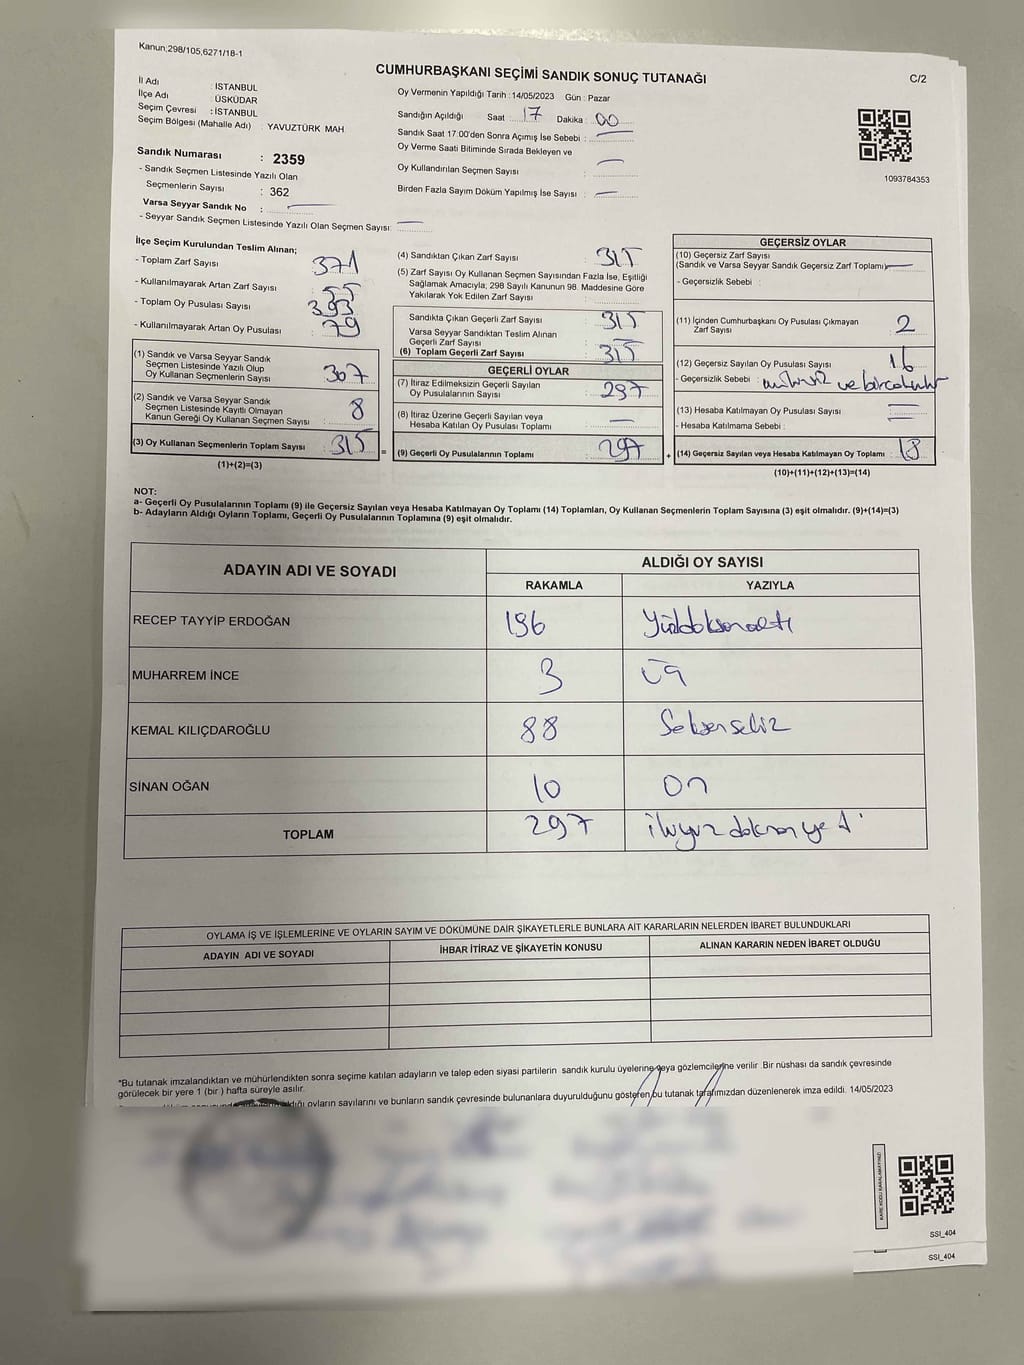 Kanun;298/105,6271/18-1
CUMHURBAŞKANI SEÇİMİ SANDIK SONUÇ TUTANAĞI
C/2
İl Adı : İSTANBUL
İlçe Adı : ÜSKÜDAR
Seçim Çevresi : İSTANBUL
Seçim Bölgesi (Mahalle Adı) : YAVUZTÜRK MAH.
Sandık Numarası : 2359
- Sandık Seçmen Listesinde Yazılı Olan
Seçmenlerin Sayısı : 362
Varsa Seyyar Sandık No :
- Seyyar Sandık Seçmen Listesinde Yazılı Olan Seçmen Sayısı:
Oy Vermenin Yapıldığı Tarih :14/05/2023 Gün : Pazar
Sandığın Açıldığı Saat : 17 Dakika : 00
Sandık Saat 17:00'den Sonra Açımış İse Sebebi :
Oy Verme Saati Bitiminde Sırada Bekleyen ve
Oy Kullandırılan Seçmen Sayısı :
Birden Fazla Sayım Döküm Yapılmış İse Sayısı :
1093784353
İlçe Seçim Kurulundan Teslim Alınan;
- Toplam Zarf Sayısı : 371
- Kullanılmayarak Artan Zarf Sayısı : 55
- Toplam Oy Pusulası Sayısı : 393
- Kullanılmayarak Artan Oy Pusulası : 79
(1) Sandık ve Varsa Seyyar Sandık
Seçmen Listesinde Yazılı Olup
Oy Kullanan Seçmenlerin Sayısı : 307
(2) Sandık ve Varsa Seyyar Sandık
Seçmen Listesinde Kayıtlı Olmayan
Kanun Gereği Oy Kullanan Seçmen Sayısı : 8
(3) Oy Kullanan Seçmenlerin Toplam Sayısı : 315
(1)+(2)=(3)
=
(4) Sandıktan Çıkan Zarf Sayısı : 315
(5) Zarf Sayısı Oy Kullanan Seçmen Sayısından Fazla İse, Eşitliği
Sağlamak Amacıyla; 298 Sayılı Kanunun 98. Maddesine Göre
Yakılarak Yok Edilen Zarf Sayısı :
Sandıkta Çıkan Geçerli Zarf Sayısı : 315
Varsa Seyyar Sandıktan Teslim Alınan
Geçerli Zarf Sayısı :
(6) Toplam Geçerli Zarf Sayısı : 315
GEÇERLİ OYLAR
(7) İtiraz Edilmeksizin Geçerli Sayılan
Oy Pusulalarının Sayısı : 297
(8) İtiraz Üzerine Geçerli Sayılan veya
Hesaba Katılan Oy Pusulası Toplamı :
(9) Geçerli Oy Pusulalarının Toplamı : 297
+
GEÇERSİZ OYLAR
(10) Geçersiz Zarf Sayısı
(Sandık ve Varsa Seyyar Sandık Geçersiz Zarf Toplamı)
- Geçersizlik Sebebi :
(11) İçinden Cumhurbaşkanı Oy Pusulası Çıkmayan
Zarf Sayısı : 2
(12) Geçersiz Sayılan Oy Pusulası Sayısı : 16
- Geçersizlik Sebebi : mühürsüz ve
(13) Hesaba Katılmayan Oy Pusulası Sayısı :
- Hesaba Katılmama Sebebi :
(14) Geçersiz Sayılan veya Hesaba Katılmayan Oy Toplamı : 18
(10)+(11)+(12)+(13)=(14)
NOT:
a- Geçerli Oy Pusulalarının Toplamı (9) ile Geçersiz Sayılan veya Hesaba Katılmayan Oy Toplamı (14) Toplamları, Oy Kullanan Seçmenlerin Toplam Sayısına (3) eşit olmalıdır. (9)+(14)=(3)
b- Adayların Aldığı Oyların Toplamı, Geçerli Oy Pusulalarının Toplamına (9) eşit olmalıdır.
ADAYIN ADI VE SOYADI
ALDIĞI OY SAYISI
RAKAMLA YAZIYLA
RECEP TAYYİP ERDOĞAN 196 Yüzdoksanaltı
MUHARREM İNCE 3 üç
KEMAL KILIÇDAROĞLU 88 Seksensekiz
SİNAN OĞAN 10 On
TOPLAM 297 ikiyüz doksan yedi
OYLAMA İŞ VE İŞLEMLERİNE VE OYLARIN SAYIM VE DÖKÜMÜNE DAİR ŞİKAYETLERLE BUNLARA AİT KARARLARIN NELERDEN İBARET BULUNDUKLARI
ADAYIN ADI VE SOYADI
İHBAR İTİRAZ VE ŞİKAYETİN KONUSU
ALINAN KARARIN NEDEN İBARET OLDUĞU
*Bu tutanak imzalandıktan ve mühürlendikten sonra seçime katılan adayların ve talep eden siyasi partilerin sandık kurulu üyelerine veya gözlemcilerine verilir .Bir nüshası da sandık çevresinde
görülecek bir yere 1 (bir ) hafta süreyle asılır.
oyların sayılarını ve bunların sandık çevresinde bulunanlara duyurulduğunu gösteren bu tutanak tarafımızdan düzenlenerek imza edildi. 14/05/2023
KARE KODU KARALAMAYINIZ!
SSI_404
SSI_404